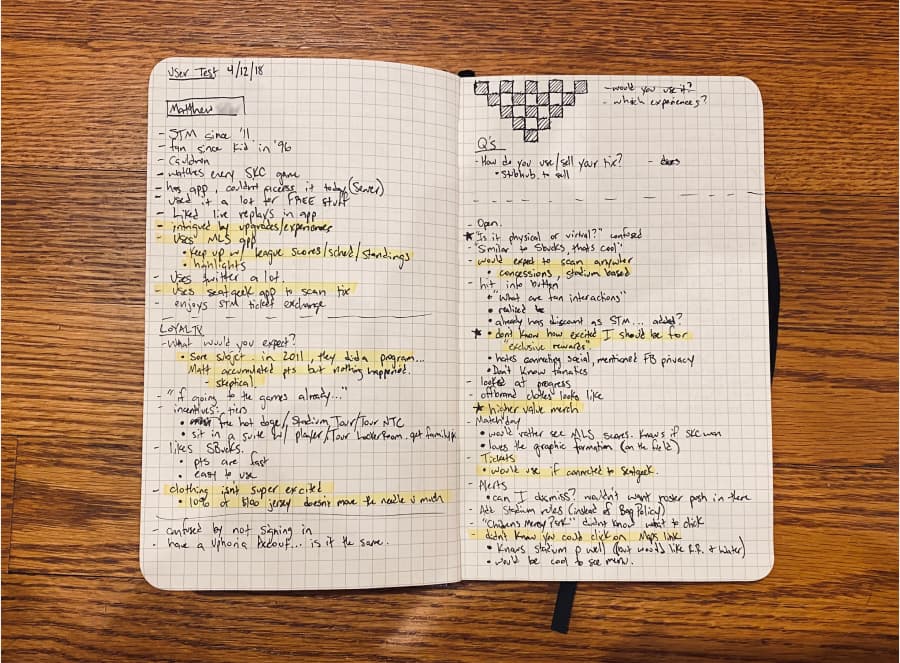 User Test 4/12/18
Matthew
- STM since '11
- fan since kid in '96
- Cauldron
- watches every SKC game
- has app, couldn't access it today (Server)
- used it a lot for FREE stuff
- Liked live replays in app
- intrigued by upgrades/experiences
- Uses MLS app
• keep up w/ league scores/sched/standings
• highlights
- Uses twitter a lot.
- Uses seatgeek app to scan tix
- enjoys STM ticket exchange
LOYALTY
- What would you expect?
• Sore subject. in 2011, they did a program...
Matt accumulated pts but nothing happened.
- skeptical.
- "if going to the games already..."
- incentives: tiers
• free hot dogs/Stadium Tour/Tour NTC
• sit in a suite w/ player/Tour Lockerroom. get family
- likes SBucks.
• pts are fast
• easy to use
- clothing isn't super excited
• 10% of $100 jersey doesn't move the needle much
- confused by not signing in
- have a Uphoria account... is it the same.
- would you use it?
- which experiences?
Q's
- How do you use/sell your tix? - does
• Stubhub to sell
- Open.
★ "Is it physical or virtual?" confused
- "Similar to Sbucks, thats cool"
- would expect to scan anywhere
• concessions, stadium based
- hit info button
• "What are fan interactions"
• realized
• already has discount as STM... added?
★ • don't know how excited I should be for
"exclusive rewards."
• hates connecting social, mentioned FB privacy
• Don't know fanatics
- looked at progress
- offbrand clothes looks like
★ higher value merch
- Matchday
• would rather see MLS scores. Knows if SKC won
• loves the graphic formation (on the field)
- Tickets
• would use if connected to Seatgeek.
- Alerts
• can I dismiss? wouldn't want roster push in there
- Add Stadium rules (instead of Bag Policy)
- "Childrens Mercy Park" didn't know what to click
- didn't know you could click on Maps link
• Knows stadium p well (but would like R.R. + Water)
• would be cool to see menu.